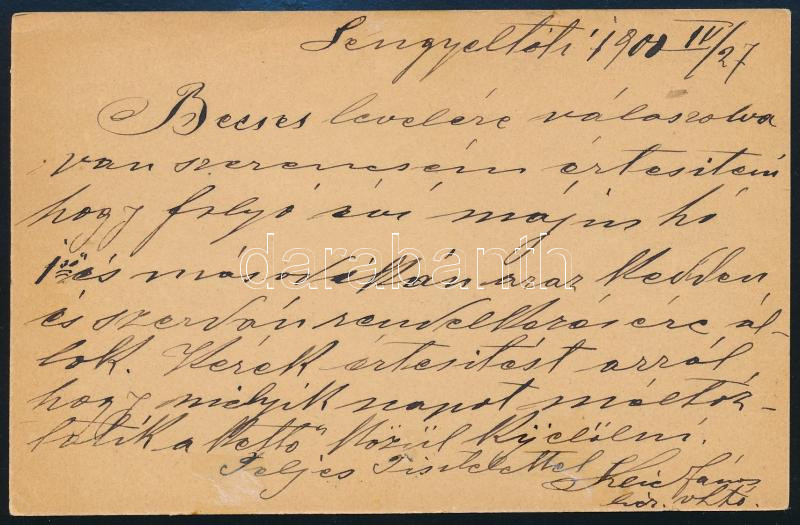 Lengyeltóti 1900 IV/27
Becses levelére válaszolva
van szerencsém értesiteni
hogy folyó évi május hó
1 és másodikán azaz kedden
és szerdán rendelkezésére ál-
lok. Kérek értesitést arról,
hogy melyik napot méltóz-
tatik a kettő közül kijelölni.
Teljes Tisztelettel
János
darabanth